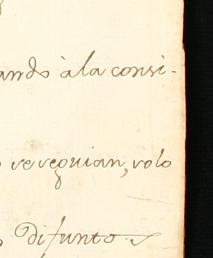 ando à la consi-
veveguian, volo
difunto